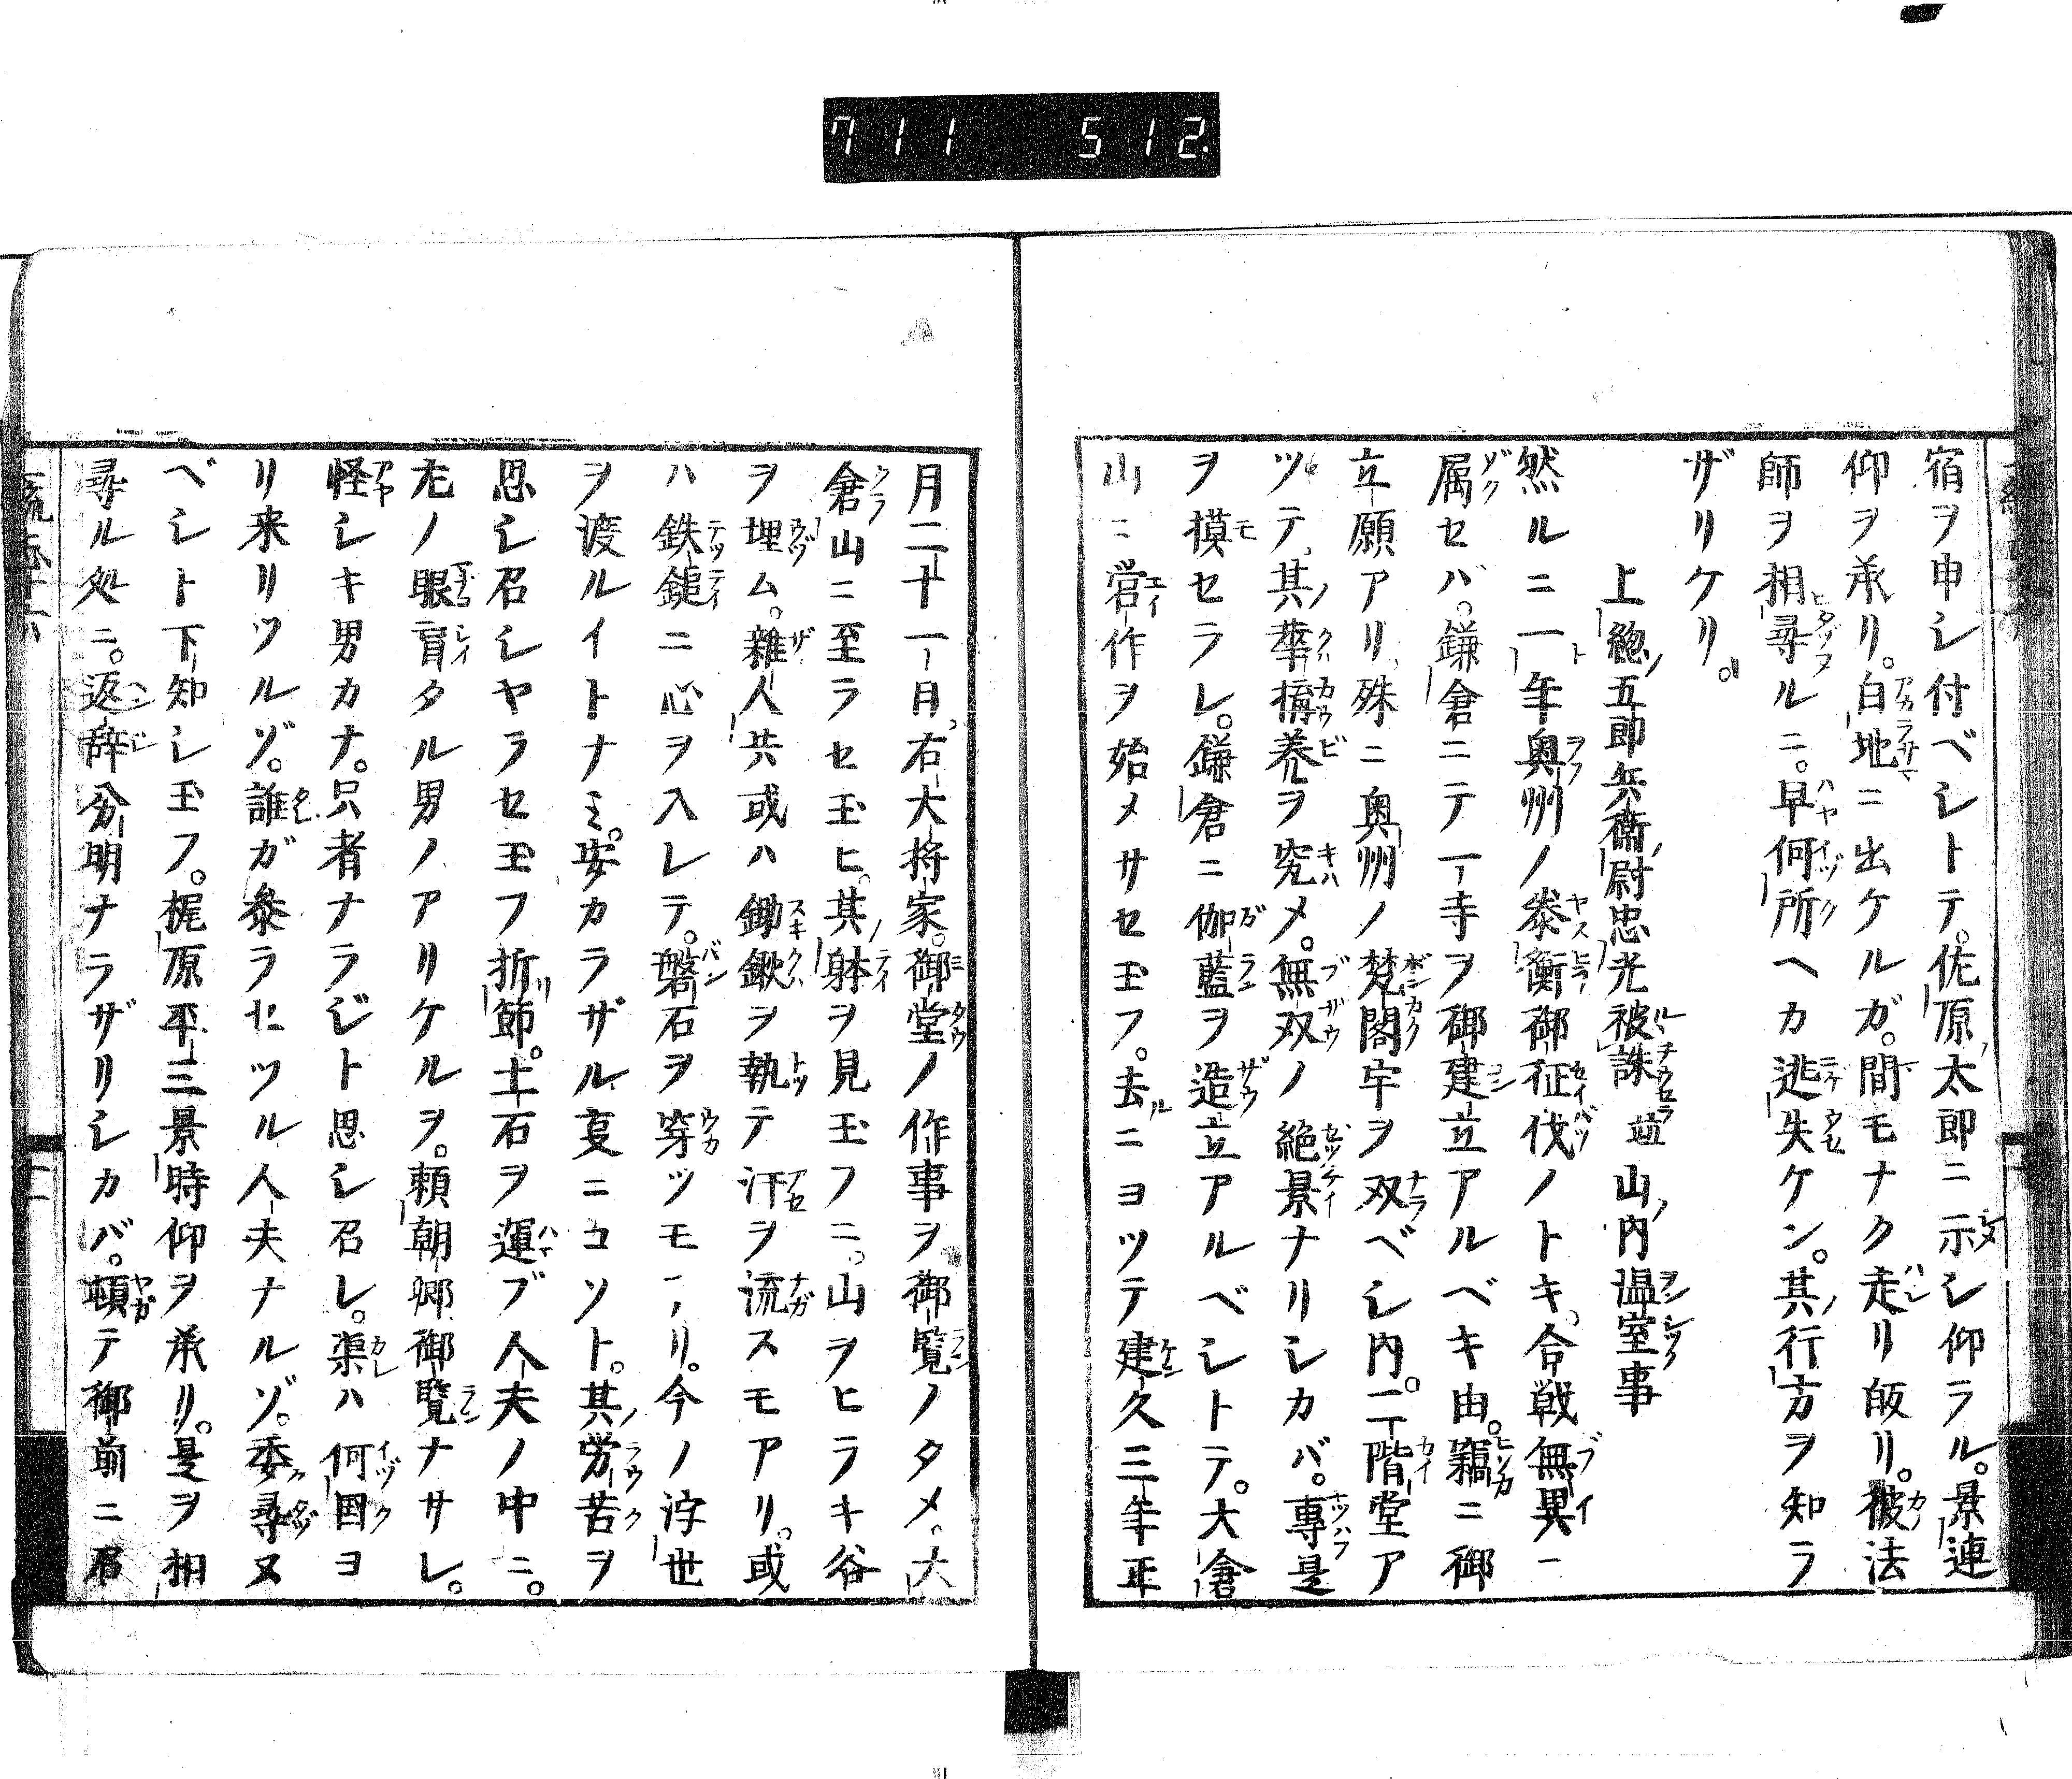 711 512
宿ヲ申シ付ベシトテ。佐原太郎ニ示シ仰ラル。景連
仰ヲ承リ。白地ニ出ケルガ。間モナク走リ皈リ。彼法
師ヲ相尋ルニ。早何所ヘカ逃失ケン。其行方ヲ知ラ
ザリケリ。
上總五郎兵衞尉忠光被誅並山内温室事
然ルニ一年奥州ノ泰衡御征伐ノトキ。合戦無異ニ
属セバ。鎌倉ニテ一寺ヲ御建立アルベキ由。竊ニ御
立願アリ。殊ニ奥州ノ梵閣宇ヲ双ベシ内。二階堂ア
ツテ。其華構美ヲ究メ。無双ノ絶景ナリシカバ。專是
ヲ摸セラレ。鎌倉ニ伽藍ヲ造立アルベシトテ。大倉
山ニ営作ヲ始メサセ玉フ。去ニヨツテ建久三年正
月二十一日。右大将家。御堂ノ作事ヲ御覧ノタメ。大
倉山ニ至ラセ玉ヒ。其躰ヲ見玉フニ。山ヲヒラキ谷
ヲ埋ム。雜人共或ハ鋤鍬ヲ執テ汗ヲ流スモアリ。或
ハ鉄鎚ニ心ヲ入レテ。磐石ヲ穿ツモアリ。今ノ浮世
ヲ渡ルイトナミ。安カラザル叓ニコソト。其労苦ヲ
思シ召シヤラセ玉フ折節。土石ヲ運ブ人夫ノ中ニ。
左ノ眼盲タル男ノアリケルヲ。頼朝卿御覧ナサレ。
怪シキ男カナ。只者ナラジト思シ召レ。渠ハ何国ヨ
リ来リツルゾ。誰ガ參ラセツル人夫ナルゾ。委尋又
ベシト下知シ玉フ。梶原平三景時仰ヲ承リ。是ヲ相
尋ル処ニ。返辞分明ナラザリシカバ。頓テ御前ニ召